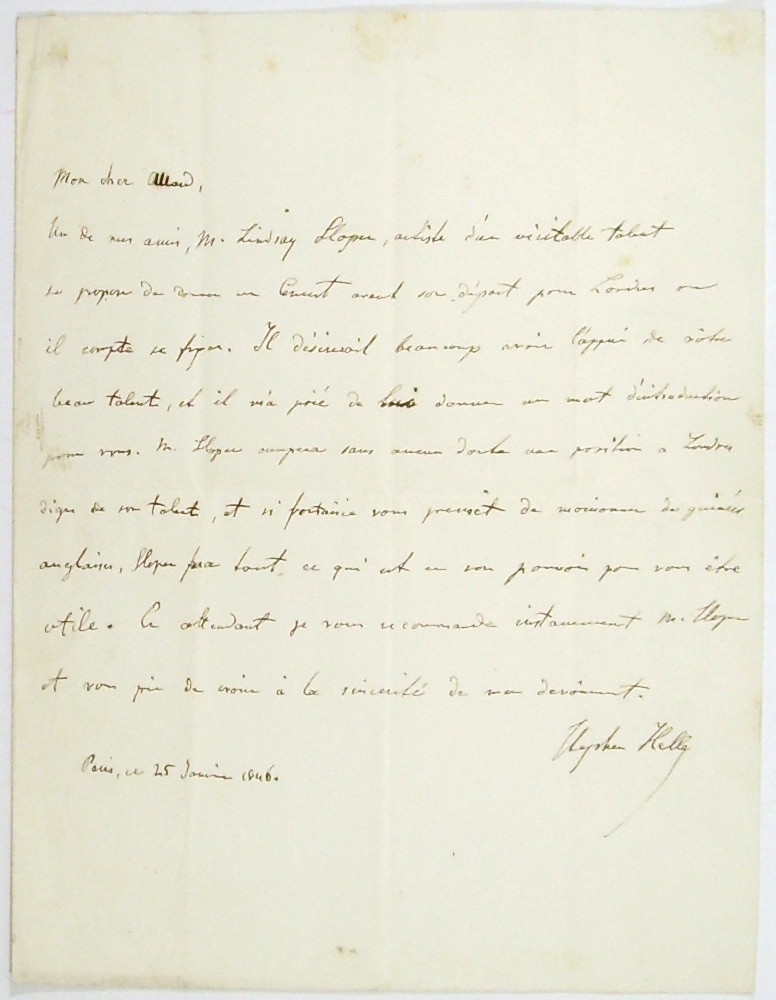 Mon cher Allard,
Un de mes amis, M. Lindsay Sloper, artiste d'un véritable talent
se propose de donner un Concert avant son départ pour Londres ou
il compte se fixer. Il désirerait beaucoup avoir l'appui de vôtre
beau talent, et il m'a prié de lui donner un mot d'introduction
pour vous. M. Sloper occupera sans aucun doute une position a Londres
digne de son talent, et si fantaisie vous prenait de moissonner des guinées
anglaises, Sloper fera tout ce qui est en son pouvoir pour vous être
utile. En attendant je vous recommande instamment M. Sloper
et vous prie de croire à la sincerité de mon devoûment.
Stephen Heller
Paris, ce 25 Janvier 1846.